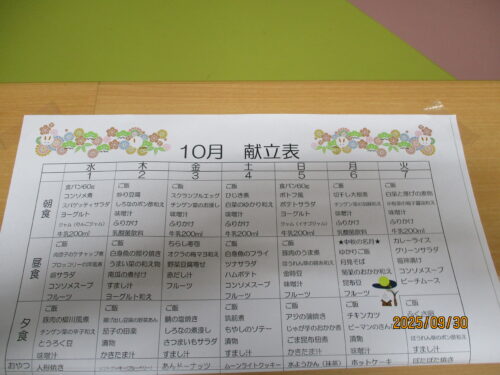 10月 献立表
水 木 金 土 日 月 火
1 2 3 4 5 6 7
朝食
食パン60g ご飯 ご飯 ご飯 食パン60g ご飯 ご飯
コンソメ煮 炒り豆腐 スクランブルエッグ ひじき煮 ポトフ風 切干し大根煮 白菜と揚げの煮物
スパゲッティサラダ しろなのポン酢和え チンゲン菜の湯葉和え 白菜のゆかり和え ポテトサラダ
ヨーグルト 味噌汁 味噌汁 味噌汁 ヨーグルト 味噌汁 味噌汁
ふりかけ ふりかけ ふりかけ ふりかけ ふりかけ
牛乳200ml 乳酸菌飲料 牛乳200ml 牛乳200ml 牛乳200ml 乳酸菌飲料 牛乳200ml
昼食
ご飯 ご飯 ちらし寿司 ご飯 ご飯 ★中秋の名月★ カレーライス
肉団子のケチャップ煮 白身魚の照り焼き オクラの梅マヨ和え 白身魚のフライ 豚肉のうま煮 ゆかりご飯 グリーンサラダ
うまい菜の和え 野菜豆腐寄せ ツナサラダ ほうれん草の錦糸和え 月見そば 福神漬
盛サラダ 南瓜の煮付け 赤だし汁 ハムポテト 金時豆 菊菜のおかか和え コンソメスープ
コンソメスープ すまし汁 フルーツ コンソメスープ 味噌汁 昆布豆 ピーチムース
フルーツ ヨーグルト和え フルーツ フルーツ フルーツ
夕食
ご飯 ご飯 ご飯 ご飯 ご飯 ご飯
豚肉の柳川風煮 鯖の塩焼き 筑前煮 アジの蒲焼き チキンカツ
チンゲン菜の辛子和え 茄子の田楽 しろなの煮浸し もやしのソテー じゃが芋のおかか煮 ピーマンのさん
とろろく豆 漬物 さつまいもサラダ 漬物 ごま昆布佃煮 漬物
味噌汁 かきたま汁 すまし汁 味噌汁 かきたま汁 味噌汁 すまし汁
おやつ
人形焼き あんドーナッツ ムーンライトクッキー 水ようかん(抹茶) ホットケーキ
2025/09/30